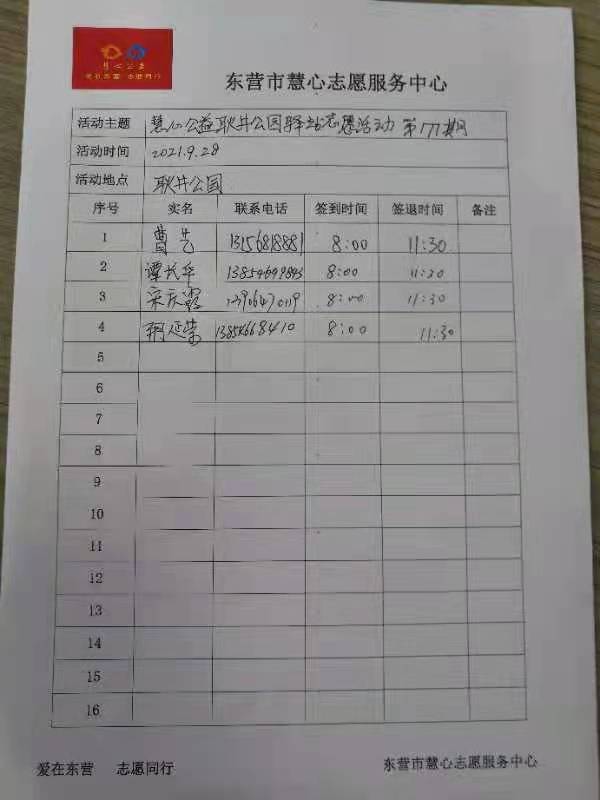 慧心公益
爱在东营 志愿同行
东营市慧心志愿服务中心
活动主题 慧心公益耿井公园驿站志愿活动 第177期
活动时间 2021.9.28
活动地点 耿井公园
序号 实名 联系电话 签到时间 签退时间 备注
1 8:00 11:30
2 谭长华 8:00 11:30
3 宋庆霞 8:00 11:30
4 13854668410 8:00 11:30
5
6
7
8
9
10
11
12
13
14
15
16
爱在东营 志愿同行 东营市慧心志愿服务中心